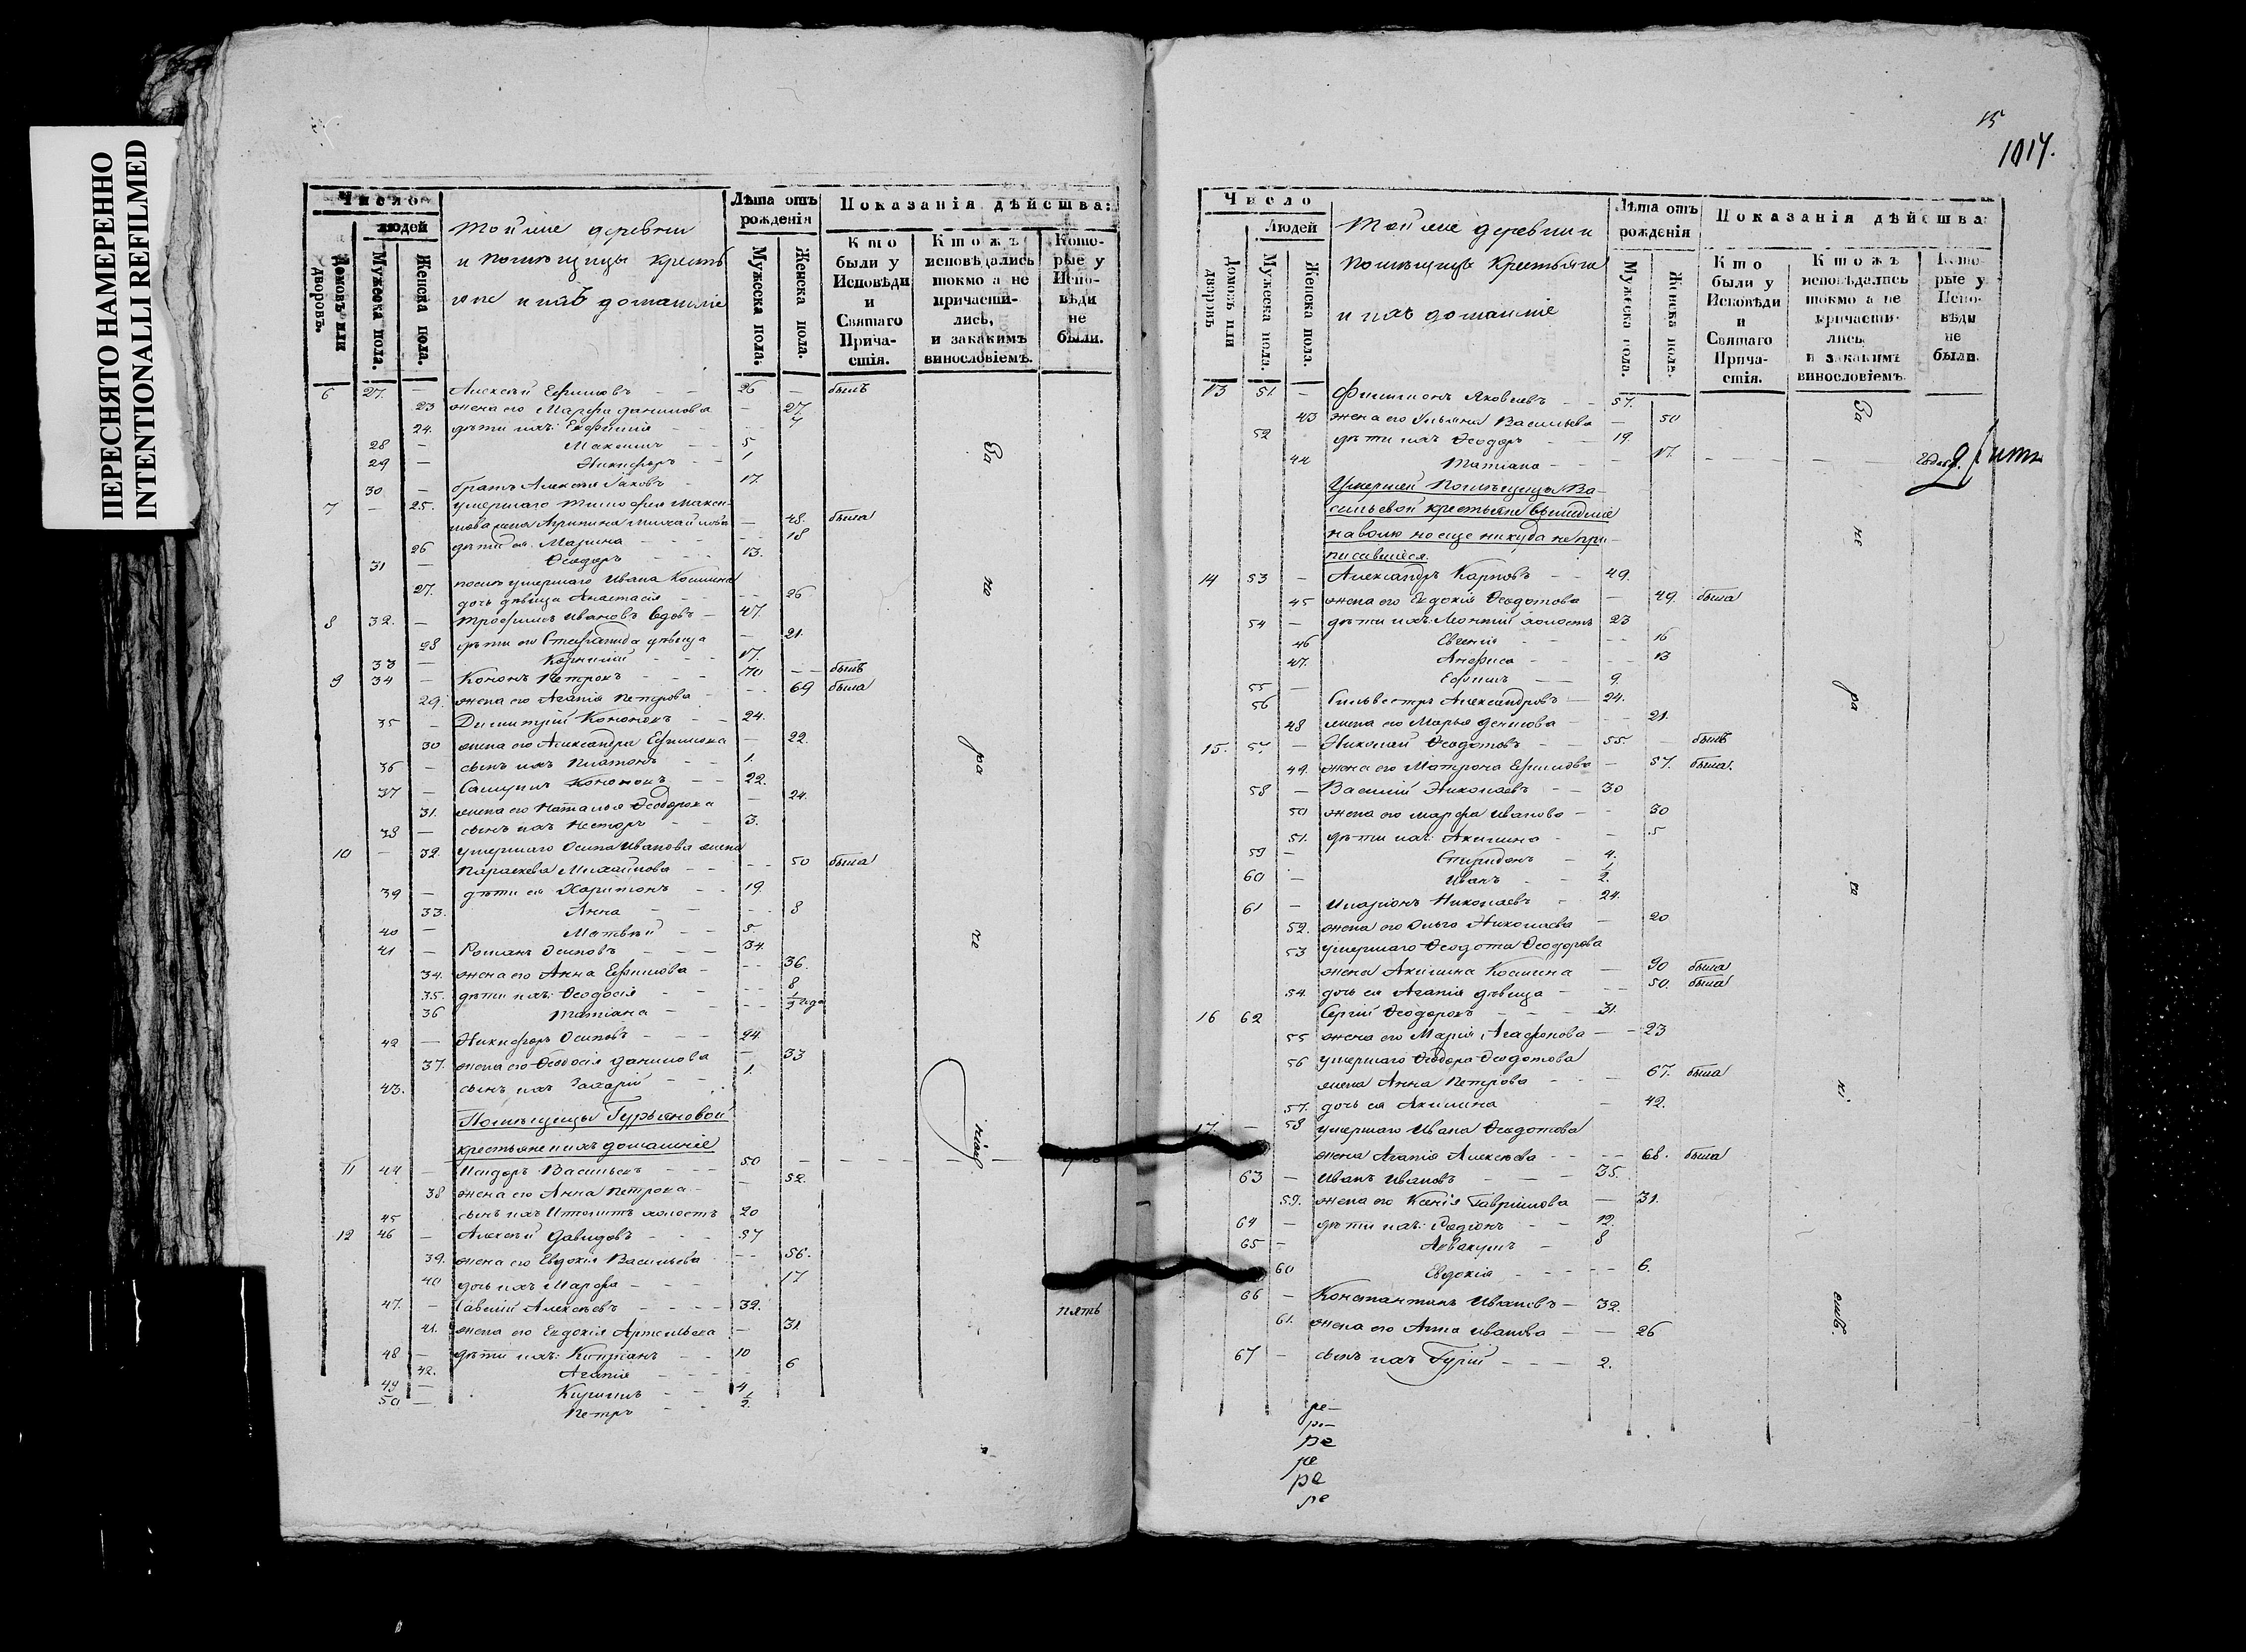 ПЕРЕСНЯТО НАМЕРЕННО
INTENTIONALLI REFILMED
Число
людей
Домовъ или дворовъ.
Мужеска пола.
Женска пола.
Той же деревни
и помѣщицы кресть
яне и ихъ домашніе
Лѣта отъ рожденія
Мужеска пола.
Женска пола.
Показанія дѣйства:
Кто были у Исповѣди и Святаго Причастія.
Ктожъ исповѣдались токмо а не причастились, и закакимъ винословіемъ.
Которые у Исповѣди не были.
6 27. Алексѣй Ефимовъ 26 — былъ
23 жена его Марфа Данилова — 27.
24. дѣти ихъ: Евфимія 7
28 — Максимъ 5
29 — Никифоръ 1
30 — братъ Алексѣя Іаковъ 17.
7 — 25. умершаго Тимофея Макси-
мова жена Агрипина Михайлова — 48. была
26 дѣти ея: Марина 18
31 — Ѳеодоръ 13.
27. послѣ умершаго Ивана Космина
дочь дѣвица Анастасія 26
8 32. — Трофимъ Ивановъ вдовъ 47.
28 дѣти его Стефанида дѣвица — 21.
33 — Корнилій 17.
9 34 — Кононъ Петровъ 70 — былъ
29. жена его Агапія Петрова 69 была
35 — Димитрій Кононовъ 24.
30 жена его Александра Ефимова — 22.
36 — сынъ ихъ Платонъ 1.
37 — Самуилъ Кононовъ 22.
31. жена его Наталья Ѳеодорова — 24.
38 — сынъ ихъ Несторъ 3.
10 — 32. умершаго Осипа Иванова жена
Параскева Михайлова 50 была
39 — дѣти ея Харитонъ 19.
33. Анна 8
40 — Матвѣй 5.
41 — Романъ Осиповъ 34.
34. жена его Анна Ефимова 36.
35. дѣти ихъ: Ѳеодосія 8
36 Татіана ½ года
42 — Никифоръ Осиповъ 24.
37. жена его Ѳеодосія Данилова — 33
43. сынъ ихъ Захарій 1.
Помѣщицы Гурьяновой
крестьяне и ихъ домашніе
11 44 — Исидоръ Васильевъ 50
38 жена его Анна Петрова — 52.
45 сынъ ихъ Иполитъ холостъ 20
12 46 — Алексѣй Давидовъ 57
39. жена его Евдокія Васильева 56.
40 дочь ихъ Марфа 17
47. — Савелій Алексѣевъ 32.
41. жена его Евдокія Артемьева — 31
48 — дѣти ихъ: Кипріанъ 10
42. Агапія 6
49 — Кирилъ 4
50 — Петръ ½.
За
не
ра
че
ніемъ
пять
15
1017.
Число
Людей
Домовъ или дворовъ
Мужеска пола.
Женска пола.
Той же деревни и
помѣщицы Крестьяне
и ихъ домашніе
Лѣта отъ рожденія
Мужеска пола.
Женска пола.
Показанія дѣйства
Кто были у Исповѣди и Святаго Причастія.
Ктожъ исповѣдались токмо а не причастились, и закакимъ винословіемъ.
Которые у Исповѣди не были.
13 51. — Филимонъ Яковлевъ 57.
43 жена его Ульяна Васильева — 50
52 дѣти ихъ Ѳеодоръ 19.
44 Татіана 17.
Умершей Помѣщицы Ва-
сильевой крестьяне вышедшіе
на волю но еще никуда не при-
писавшіеся.
14 53 — Александръ Карповъ 49.
45 жена его Евдокія Ѳеодотова — 49. была
54 — дѣти ихъ: Леонтій холостъ 23
46 Евгенія 16
47. Анфиса 13
55 — Ефимъ 9.
56 Сильвестръ Александровъ 24.
48 жена его Марья Денисова 21.
15. 57. — Николай Ѳеодотовъ 55. — былъ
49. жена его Матрона Ефимова — 57. была.
58 — Василій Николаевъ 30
50 жена его Марфа Иванова 30
51. дѣти ихъ: Акилина 5
59 — Спиридонъ 4.
60 — Иванъ ½.
61 — Иларіонъ Николаевъ 24.
52. жена его Ольга Николаева — 20
53 умершаго Ѳеодота Ѳеодорова
жена Акилина Космина — 90 была
54. дочь ея Агапія дѣвица 50. была
16 62 Сергій Ѳеодоровъ 31.
55 жена его Марія Агафонова — 23
56 умершаго Ѳеодора Ѳеодотова
жена Анна Петрова 67. была
57. дочь ея Акилина — 42.
17. — 58 умершаго Ивана Ѳеодотова
жена Агапія Алексѣева 68. была
63 — Иванъ Ивановъ 35.
59. жена его Ксенія Гаврилова — 31.
64 — дѣти ихъ: Родіонъ 12.
65 — Аввакумъ 8
60 Евдокія 6.
66 — Константинъ Ивановъ 32.
61. жена его Анна Иванова — 26
67 — сынъ ихъ Гурій 2.
За
не
ра
ре—
ре—
ре
ре
ре
ре